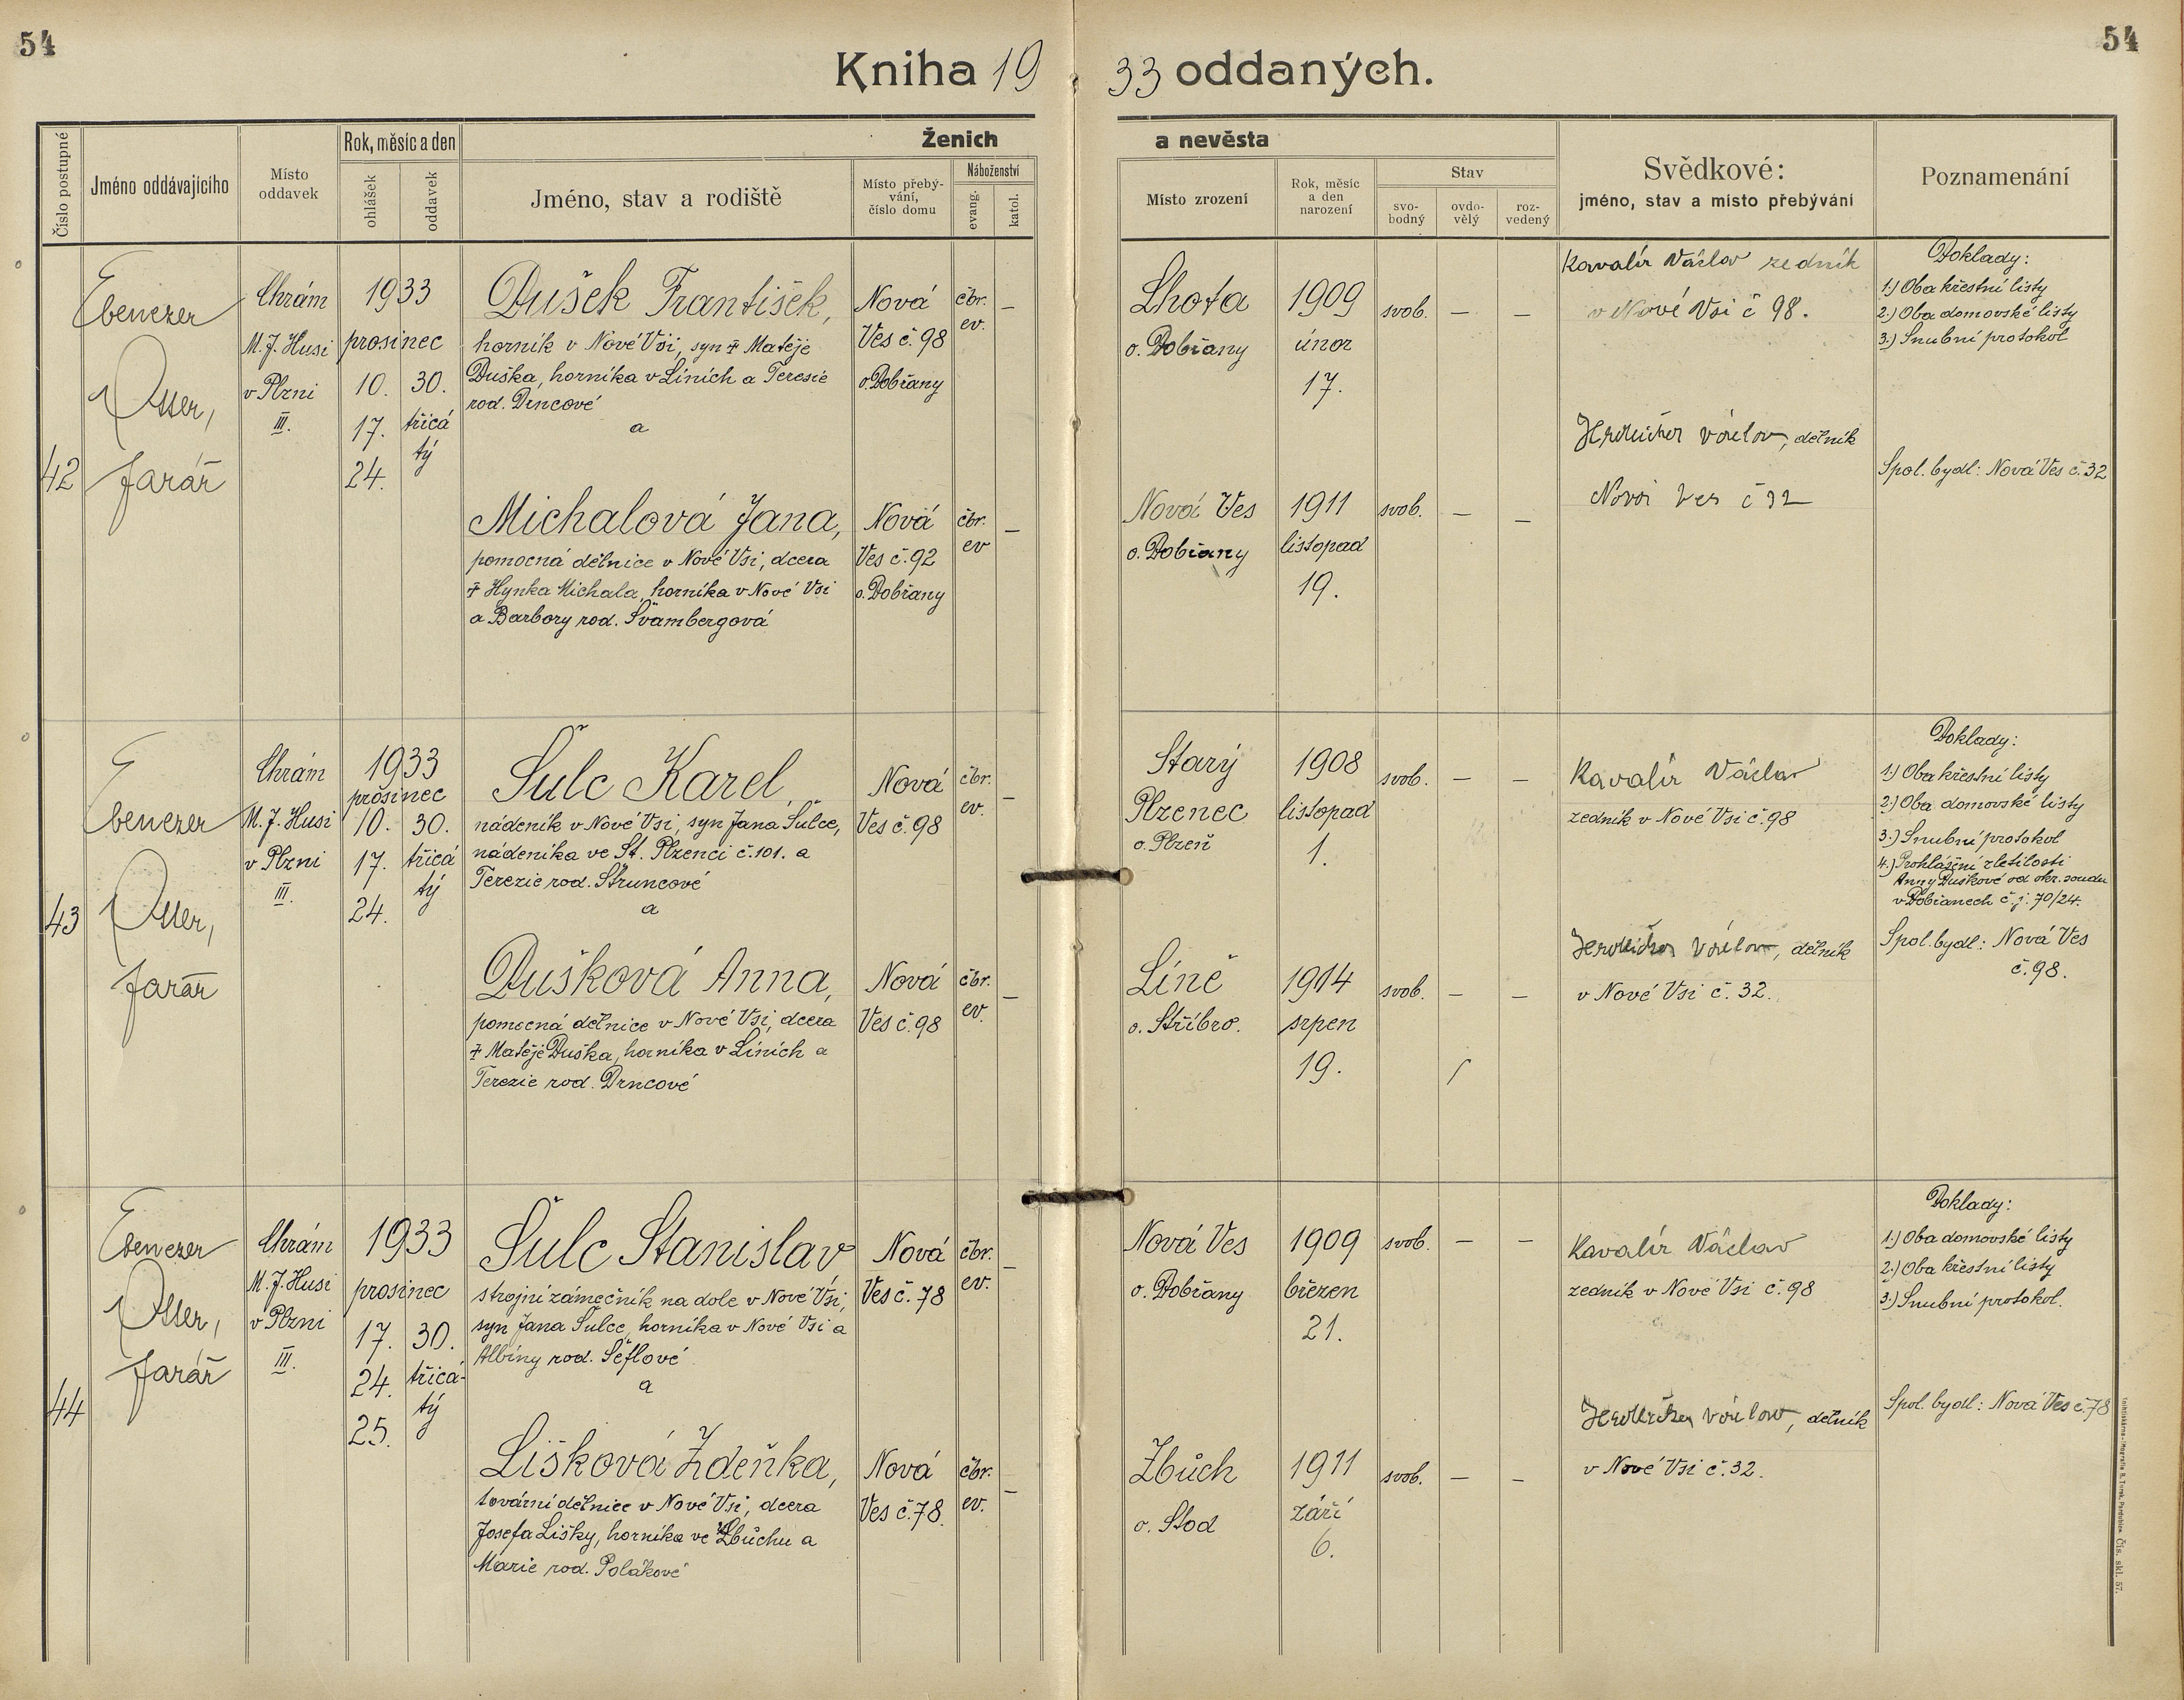 54
54
Kniha 19 33 oddaných.
Číslo postupné
Jméno oddávajícího
Místo oddavek
Rok, měsíc a den
ohlášek
oddavek
Ženich
a nevěsta
Jméno, stav a rodiště
Místo přebý-
vání,
číslo domu
Náboženství
evang.
katol.
Místo zrození
Rok, měsíc
a den
narození
Stav
svo-
bodný
ovdo-
vělý
roz-
vedený
Svědkové:
jméno, stav a místo přebývání
Poznamenání
42
Ebenezer
Otter,
farář
Chrám
M. J. Husi
v Plzni
III.
1933
prosinec
10. 30.
17. třicá
tý
24.
Dušek František,
horník v Nové Vsi, syn ‡ Matěje
Duška, horníka v Líních a Teresie
rod. Drncové
a
Nová
Ves č. 98
o. Dobřany
čbr.
ev.
–
Lhota
o. Dobřany
1909
únor
17.
svob. – –
Kavalír Václav zedník
v Nové Vsi č 98.
Doklady:
1.) Oba křestní listy
2.) Oba domovské listy
3.) Snubní protokol
Michalová Jana,
pomocná dělnice v Nové Vsi, dcera
‡ Hynka Michala, horníka v Nové Vsi
a Barbory rod. Švambergová
Nová
Ves č. 92
o. Dobřany
čbr.
ev
–
Nová Ves
o. Dobřany
1911
listopad
19.
svob. – –
Václav, dělník
Nová Ves č 32
Spol. bydl: Nová Ves č. 32
43
Ebenezer
Otter,
farář
Chrám
M. J. Husi
v Plzni
III.
1933
prosinec
10. 30.
17. třicá
tý
24.
Šulc Karel,
nádeník v Nové Vsi, syn Jana Šulce,
nádeníka ve St. Plzenci č. 101. a
Terezie rod. Štruncové
a
Nová
Ves č. 98
čbr.
ev.
–
Starý
Plzenec
o. Plzeň
1908
listopad
1.
svob. – –
Kavalír Václav
zedník v Nové Vsi č. 98
Doklady:
1.) Oba křestní listy
2.) Oba domovské listy
3.) Snubní protokol
4.) Prohlášení zletilosti
Anny Duškové od okr. soudu
v Dobřanech č. j. 70/24.
Dušková Anna,
pomocná dělnice v Nové Vsi, dcera
‡ Matěje Duška, horníka v Líních a
Terezie rod. Drncové
Nová
Ves č. 98
čbr.
ev.
–
Líně
o. Stříbro.
1914
srpen
19.
svob. – –
Václav, dělník
v Nové Vsi č. 32.
Spol. bydl: Nová Ves
č. 98.
44
Ebenezer
Otter,
farář
Chrám
M. J. Husi
v Plzni
III.
1933
prosinec
17. 30.
24. třicá-
tý
25.
Šulc Stanislav
strojní zámečník na dole v Nové Vsi,
syn Jana Šulce, horníka v Nové Vsi a
Albíny rod. Šeflové
a
Nová
Ves č. 78
čbr.
ev.
–
Nová Ves
o. Dobřany
1909
březen
21.
svob. – –
Kavalír Václav
zedník v Nové Vsi č. 98
Doklady:
1.) Oba domovské listy
2.) Oba křestní listy
3.) Snubní protokol.
Lišková Zdeňka,
tovární dělnice v Nové Vsi, dcera
Josefa Lišky, horníka ve Zbůchu a
Marie rod. Polákové
Nová
Ves č. 78.
čbr.
ev.
–
Zbůch
o. Stod
1911
září
6.
svob. – –
Václav, dělník
v Nové Vsi č. 32.
Spol. bydl: Nová Ves č. 78
Čís. skl. 57.